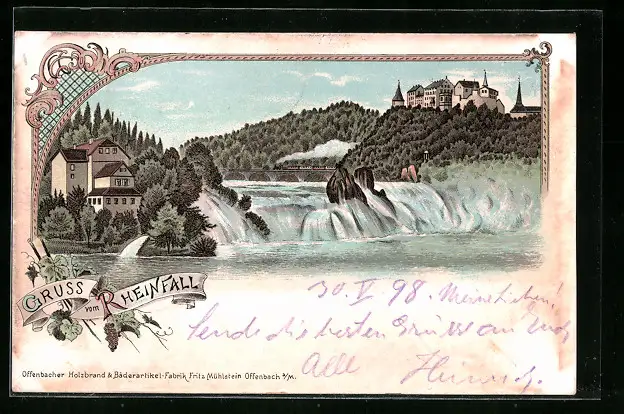 GRUSS vom RHEINFALL
30. V 98. Meine Lieben!
Sende die besten Grüsse an Euch
Alle Heinrich.
Offenbacher Holzbrand & Bäderartikel-Fabrik Fritz Mühlstein Offenbach a/M.